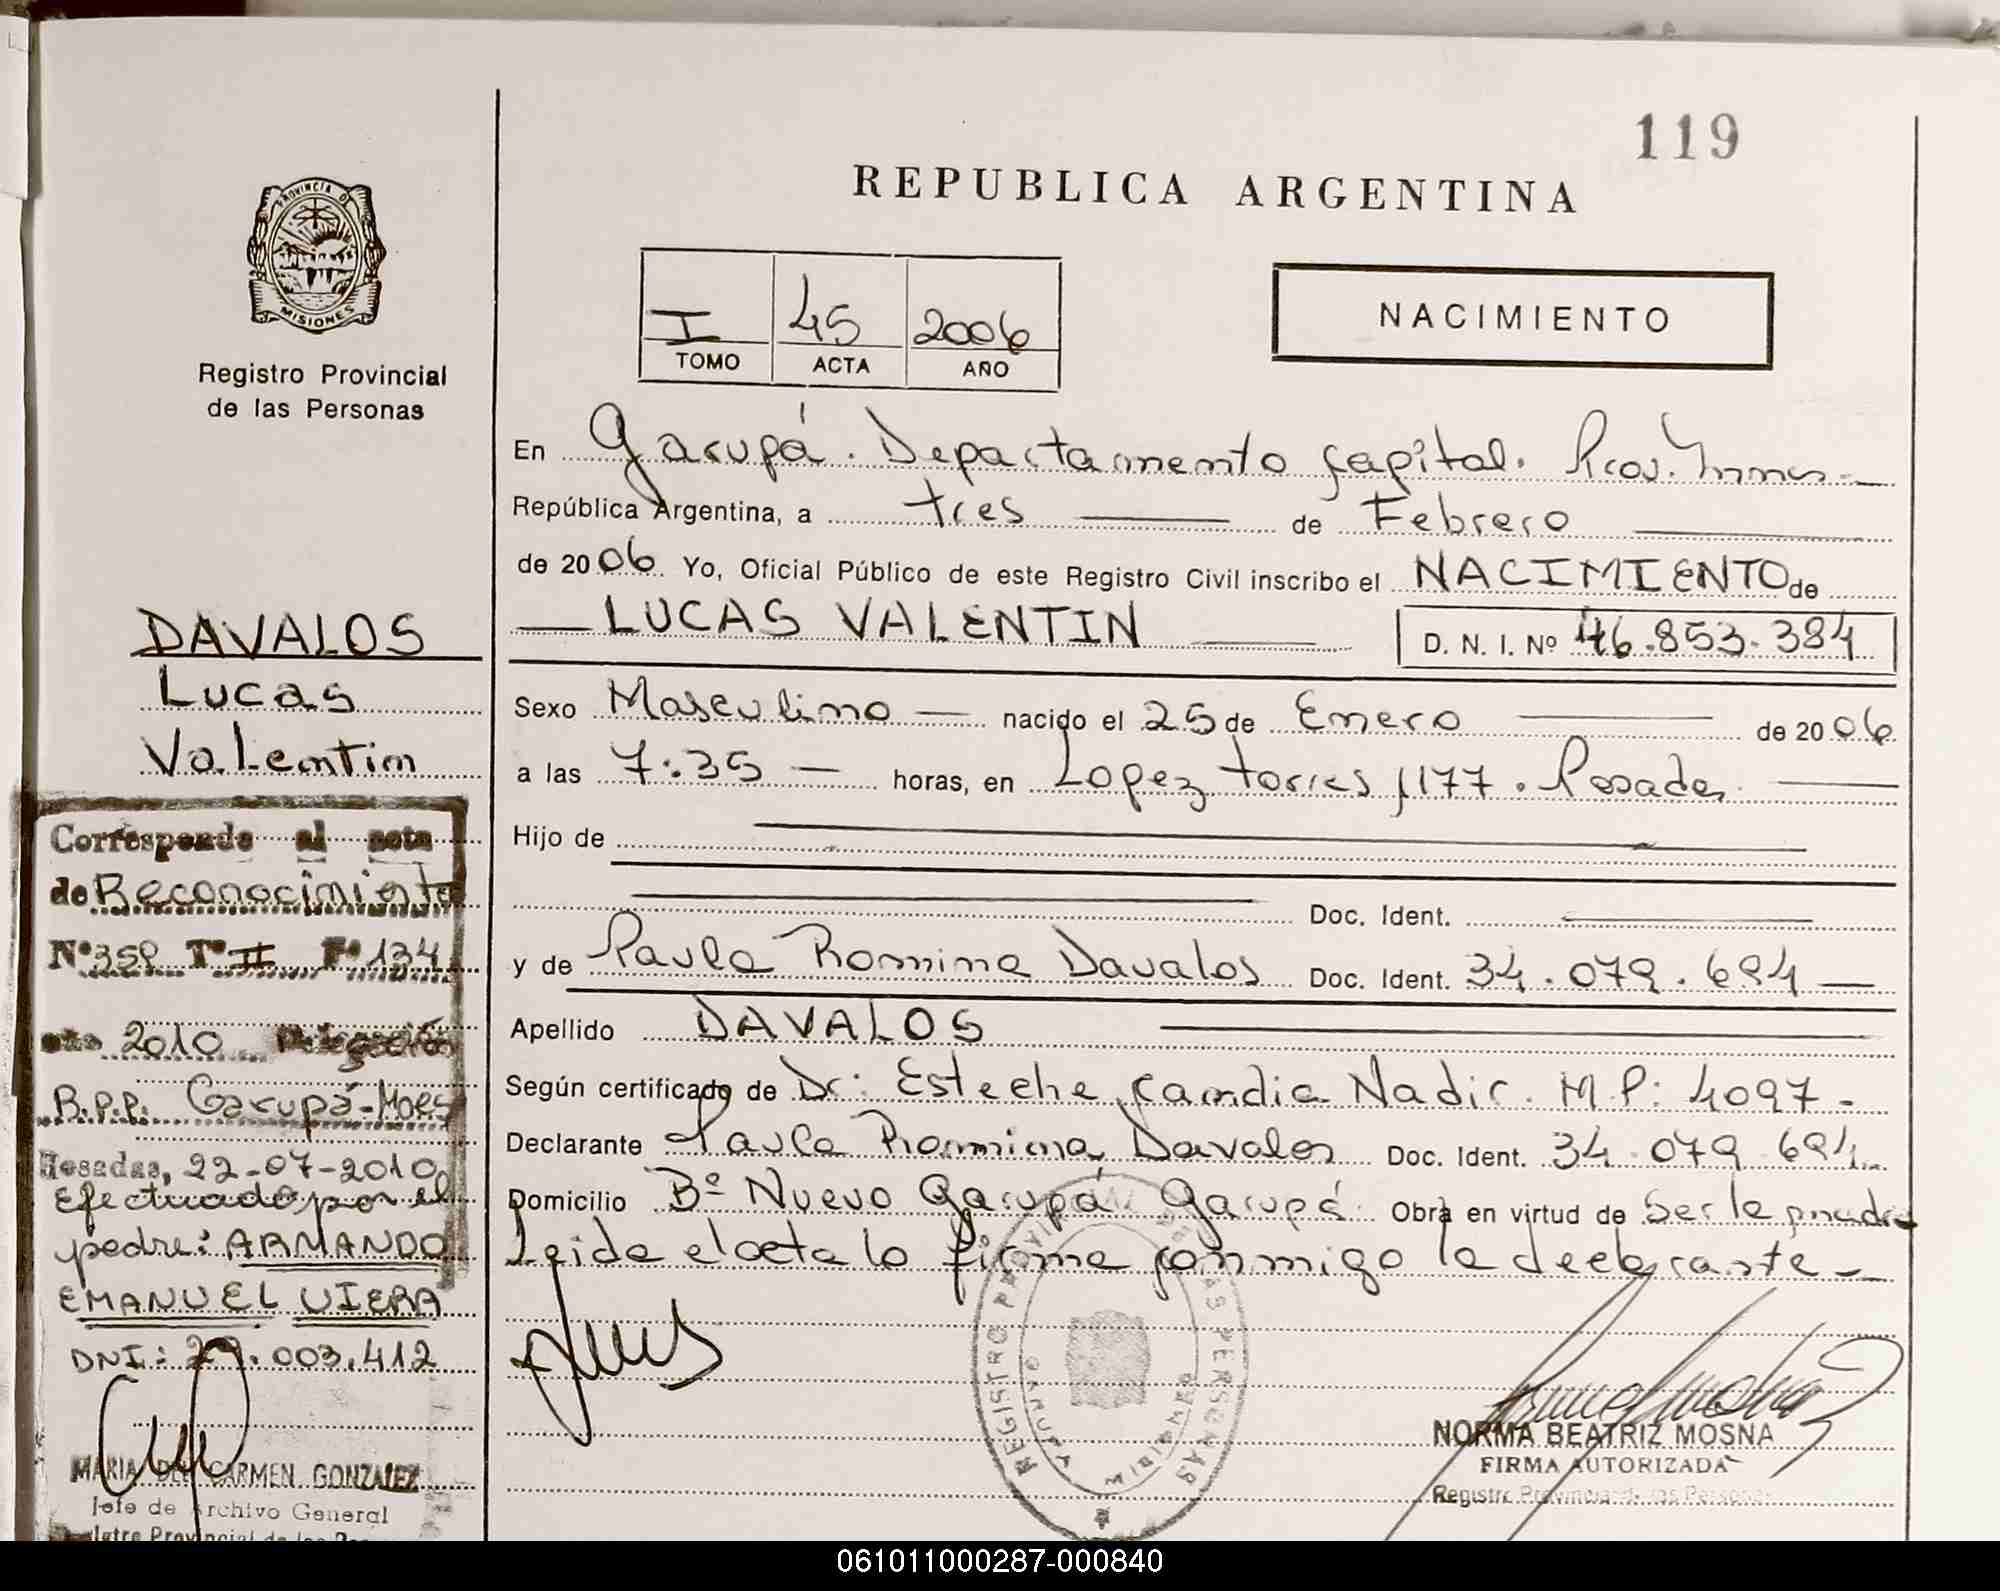 119
REPUBLICA ARGENTINA
PROVINCIA DE
MISIONES
Registro Provincial
de las Personas
I 45 2006
TOMO ACTA AÑO
NACIMIENTO
En Garupá. Departamento Capital. Prov. Mnes
República Argentina, a tres de Febrero
de 2006 Yo, Oficial Público de este Registro Civil inscribo el NACIMIENTO de
LUCAS VALENTIN D. N. I. Nº 46.853.384
Sexo Masculino nacido el 25 de Enero de 2006
a las 7:35 horas, en Lopez torres 1177. Posadas
Hijo de
Doc. Ident.
y de Paula Romina Davalos Doc. Ident. 34.079.694
Apellido DAVALOS
Según certificado de Dr: Esteche Candia Nadir. M.P: 4097.
Declarante Paula Romina Davalos Doc. Ident. 34.079.694
Domicilio Bº Nuevo Garupá Garupá Obra en virtud de Ser la madre
Leida el acta la firma conmigo la declarante
DAVALOS
Lucas
Valentin
Corresponde al acta
de Reconocimiento
Nº 359 Tº II Fº 134
año 2010 Delegación
R.P.P. Garupá-Mnes
Posadas, 22-07-2010
Efectuado por el
padre: ARMANDO
EMANUEL VIERA
DNI: 29.003.412
MARIA DEL CARMEN GONZALEZ
Jefe de Archivo General
REGISTRO PROVINCIAL DE LAS PERSONAS
NORMA BEATRIZ MOSNA
FIRMA AUTORIZADA
Registro Provincial de las Personas
061011000287-000840